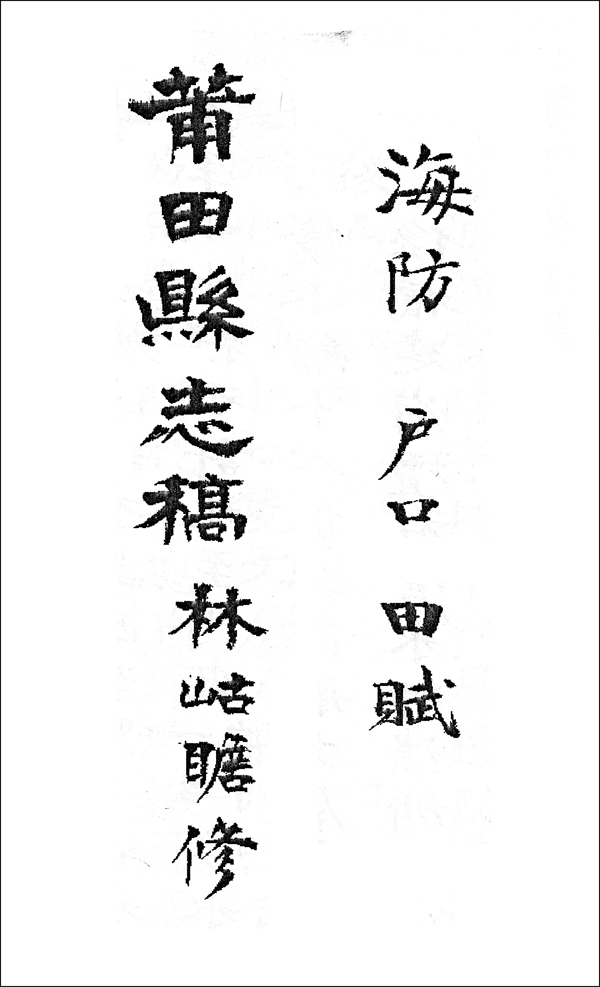 海防 户口 田賦
莆田縣志稿 林岵瞻修